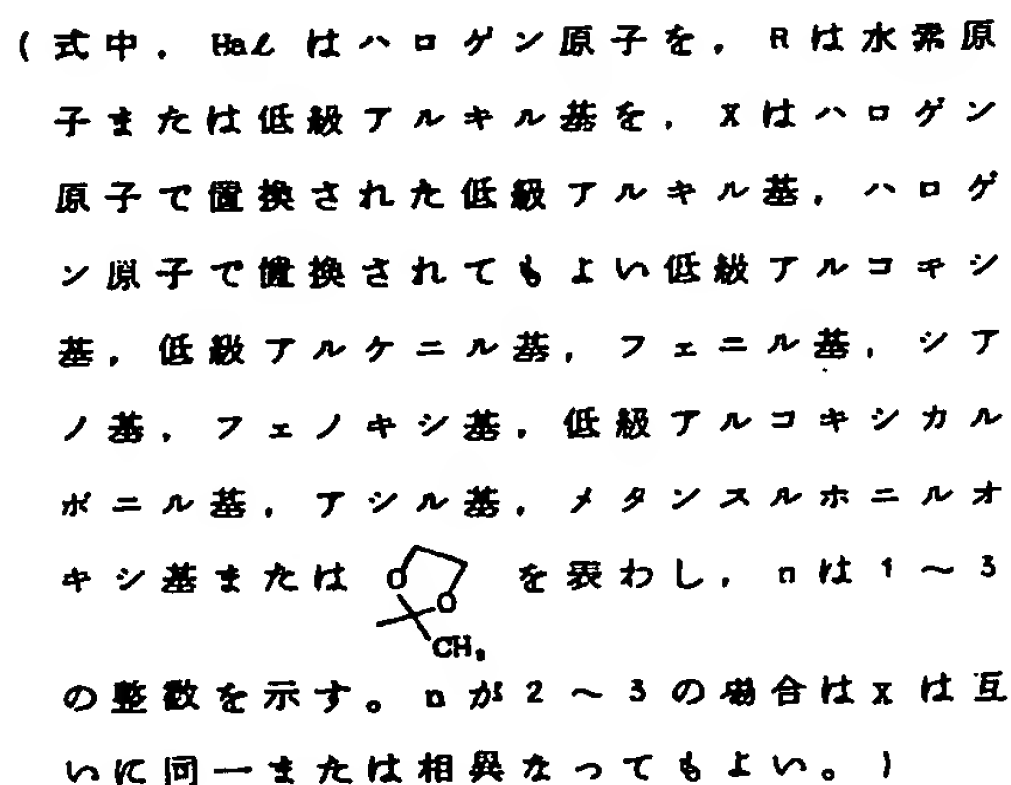 (式中，Halはハロゲン原子を，Rは水素原
子または低級アルキル基を，Xはハロゲン
原子で置換された低級アルキル基，ハロゲ
ン原子で置換されてもよい低級アルコキシ
基，低級アルケニル基，フェニル基，シア
ノ基，フェノキシ基，低級アルコキシカル
ボニル基，アシル基，メタンスルホニルオ
キシ基または O O CH₃ を表わし，nは1～3
の整数を示す。nが2～3の場合はXは互
いに同一または相異なってもよい。)